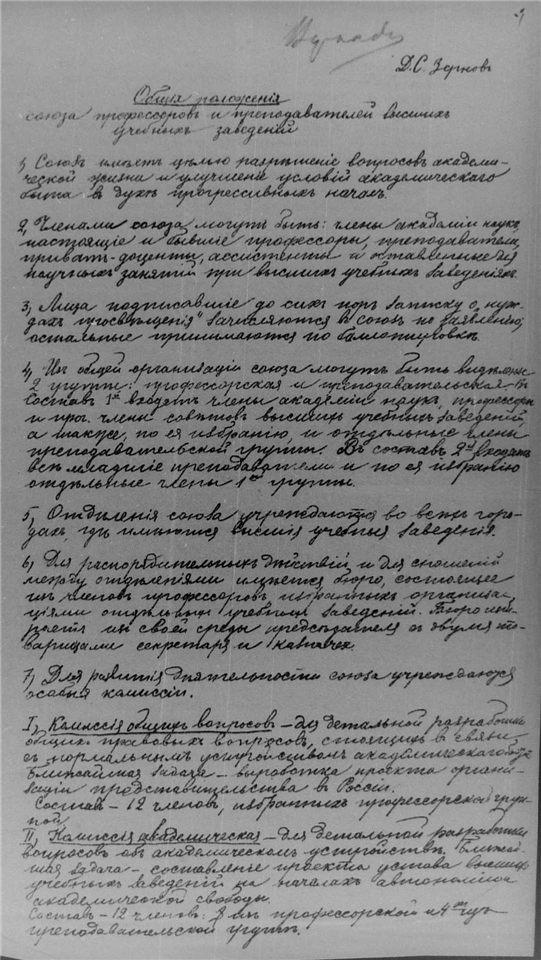 Д.С. Зерновъ
Общія положенія
союза профессоровъ и преподавателей высшихъ
учебныхъ заведеній
1, Союзъ имѣетъ цѣлью разрѣшеніе вопросовъ академи-
ческой жизни и улучшеніе условій академическаго
быта въ духѣ прогрессивныхъ началъ.
2, Членами союза могутъ быть: члены академіи наукъ,
настоящіе и бывшіе профессоры, преподаватели,
приватъ-доценты, ассистенты и оставленные для
научныхъ занятій при высшихъ учебныхъ заведеніяхъ.
3, Лица подписавшіе до сихъ поръ записку о „нуж-
дахъ просвѣщенія" зачисляются въ союзъ по заявленію;
остальные принимаются по баллотировкѣ.
4, Изъ общей организаціи союза могутъ быть выдѣлены
2 группы: профессорская и преподавательская. Въ
составъ 1ой входятъ члены академіи наукъ, профессоры
и проч. члены совѣтовъ высшихъ учебныхъ заведеній,
а также, по ея избранію, и отдѣльные члены
преподавательской группы. Въ составъ 2ой входятъ
всѣ младшіе преподаватели и по ея избранію
отдѣльные члены 1ой группы.
5, Отдѣленія союза учреждаются во всѣхъ горо-
дахъ, гдѣ имѣются высшія учебныя заведенія.
6, Для распорядительныхъ дѣйствій и для сношеній
между отдѣленіями имѣется бюро, состоящее
изъ членовъ профессоровъ, избранныхъ организа-
ціями отдѣльныхъ учебныхъ заведеній. Бюро изби-
раетъ изъ своей среды предсѣдателя съ двумя то-
варищами секретаря и казначея.
7, Для развитія дѣятельности союза учреждаются
особыя комиссіи.
I, Комиссія общихъ вопросовъ – для детальной разработки
общихъ правовыхъ вопросовъ, стоящихъ въ связи
съ нормальнымъ устройствомъ академическаго быта
Ближайшая задача – выработка проекта органи-
заціи представительства въ Россіи.
Составъ – 12 членовъ, избранныхъ профессорской груп-
пой
II, Комиссія академическая – для детальной разработки
вопросовъ объ академическомъ устройствѣ. Ближай-
шая задача – составленіе проекта устава высшихъ
учебныхъ заведеній на началахъ автономіи и
академической свободы.
Составъ – 12 членовъ: 8 изъ профессорской и 4 изъ
преподавательской группъ.